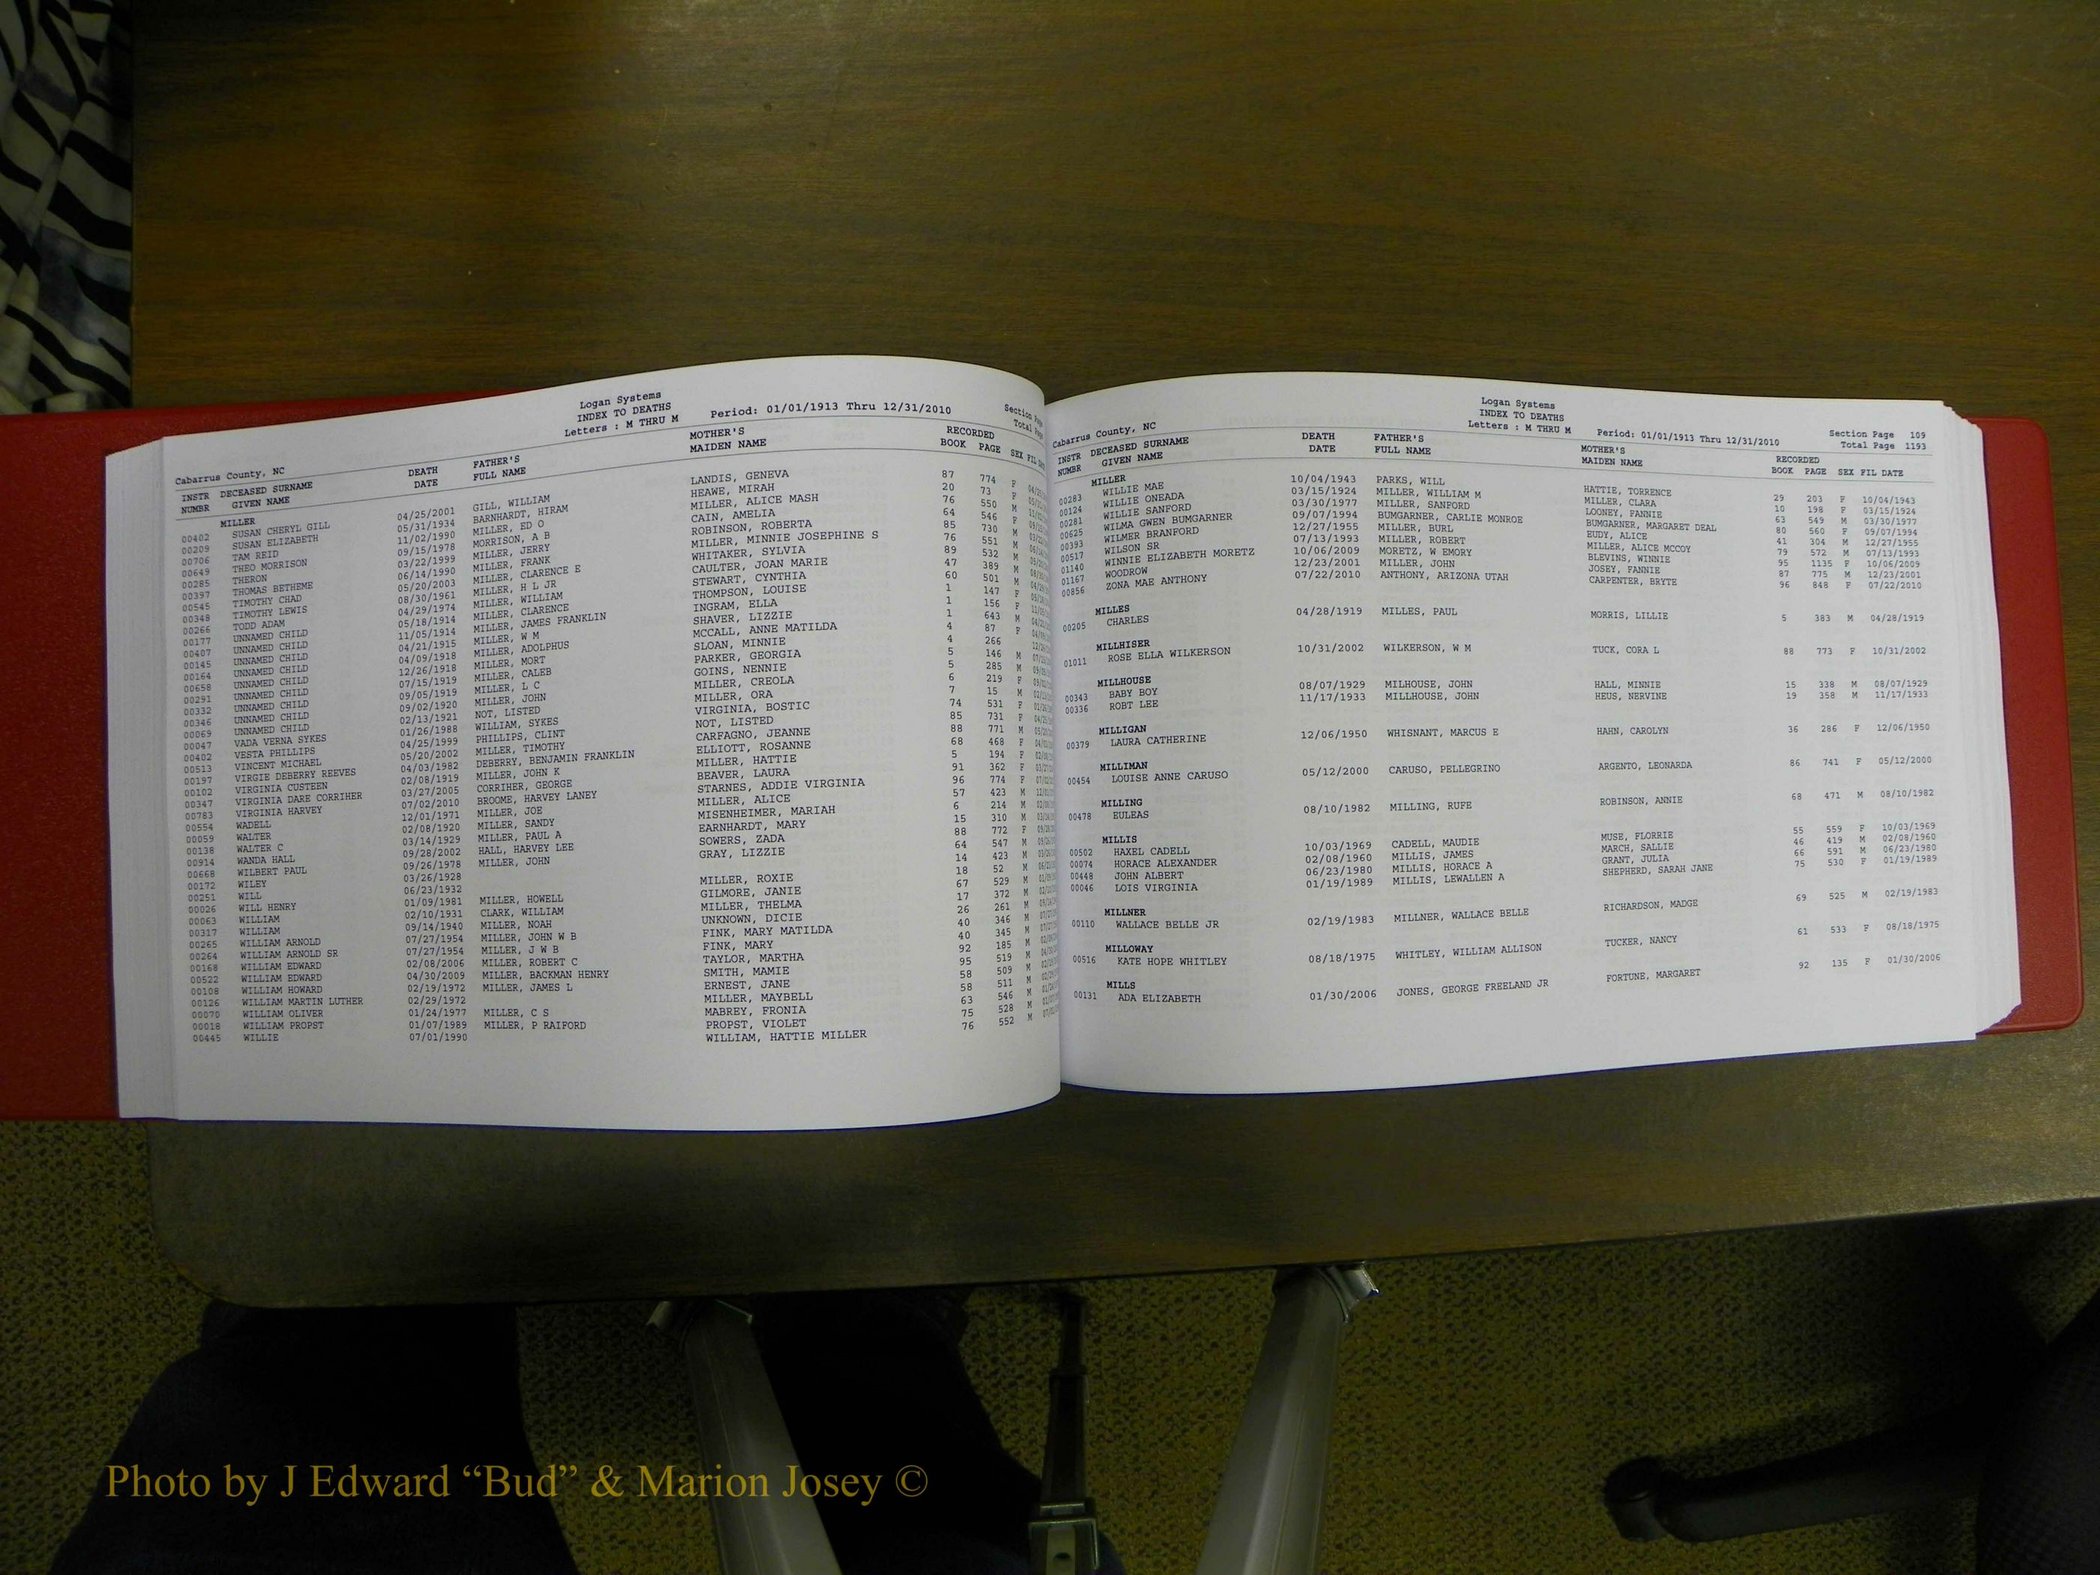 Logan Systems
INDEX TO DEATHS
Letters : M THRU M Period: 01/01/1913 Thru 12/31/2010 Section Page
Cabarrus County, NC Total Page
INSTR DECEASED SURNAME DEATH FATHER'S MOTHER'S RECORDED
NUMBR GIVEN NAME DATE FULL NAME MAIDEN NAME BOOK PAGE SEX FIL DATE
MILLER
00402 SUSAN CHERYL GILL 04/25/2001 GILL, WILLIAM LANDIS, GENEVA 87 774 F
00209 SUSAN ELIZABETH 05/31/1934 BARNHARDT, HIRAM HEAWE, MIRAH 20 73 F
00706 TAM REID 11/02/1990 MILLER, ED O MILLER, ALICE MASH 76 550 M
00649 THEO MORRISON 09/15/1978 MORRISON, A B CAIN, AMELIA 64 546 F
00285 THERON 03/22/1999 MILLER, JERRY ROBINSON, ROBERTA 85 730 M
00397 THOMAS BETHEME 06/14/1990 MILLER, FRANK MILLER, MINNIE JOSEPHINE S 76 551 M
00545 TIMOTHY CHAD 05/20/2003 MILLER, CLARENCE E WHITAKER, SYLVIA 89 532 M
00348 TIMOTHY LEWIS 08/30/1961 MILLER, H L JR CAULTER, JOAN MARIE 47 389 M
00266 TODD ADAM 04/29/1974 MILLER, WILLIAM STEWART, CYNTHIA 60 501 M
00177 UNNAMED CHILD 05/18/1914 MILLER, CLARENCE THOMPSON, LOUISE 1 147 F
00407 UNNAMED CHILD 11/05/1914 MILLER, JAMES FRANKLIN INGRAM, ELLA 1 156 F
00145 UNNAMED CHILD 04/21/1915 MILLER, W M SHAVER, LIZZIE 1 643 M
00164 UNNAMED CHILD 04/09/1918 MILLER, ADOLPHUS MCCALL, ANNE MATILDA 4 87 F
00658 UNNAMED CHILD 12/26/1918 MILLER, MORT SLOAN, MINNIE 4 266
00291 UNNAMED CHILD 07/15/1919 MILLER, CALEB PARKER, GEORGIA 5 146 M
00332 UNNAMED CHILD 09/05/1919 MILLER, L C GOINS, NENNIE 5 285 M
00346 UNNAMED CHILD 09/02/1920 MILLER, JOHN MILLER, CREOLA 6 219 F
00069 UNNAMED CHILD 02/13/1921 NOT, LISTED MILLER, ORA 7 15 M
00047 VADA VERNA SYKES 01/26/1988 WILLIAM, SYKES VIRGINIA, BOSTIC 74 531 F
00402 VESTA PHILLIPS 04/25/1999 PHILLIPS, CLINT NOT, LISTED 85 731 F
00513 VINCENT MICHAEL 05/20/2002 MILLER, TIMOTHY CARFAGNO, JEANNE 88 771 M
00197 VIRGIE DEBERRY REEVES 04/03/1982 DEBERRY, BENJAMIN FRANKLIN ELLIOTT, ROSANNE 68 468 F
00102 VIRGINIA CUSTEEN 02/08/1919 MILLER, JOHN K MILLER, HATTIE 5 194 F
00347 VIRGINIA DARE CORRIHER 03/27/2005 CORRIHER, GEORGE BEAVER, LAURA 91 362 F
00783 VIRGINIA HARVEY 07/02/2010 BROOME, HARVEY LANEY STARNES, ADDIE VIRGINIA 96 774 F
00554 WADELL 12/01/1971 MILLER, JOE MILLER, ALICE 57 423 M
00059 WALTER 02/08/1920 MILLER, SANDY MISENHEIMER, MARIAH 6 214 M
00138 WALTER C 03/14/1929 MILLER, PAUL A EARNHARDT, MARY 15 310 M
00914 WANDA HALL 09/28/2002 HALL, HARVEY LEE SOWERS, ZADA 88 772 F
00668 WILBERT PAUL 09/26/1978 MILLER, JOHN GRAY, LIZZIE 64 547 M
00172 WILEY 03/26/1928 14 423 M
00251 WILL 06/23/1932 MILLER, ROXIE 18 52 M
00026 WILL HENRY 01/09/1981 MILLER, HOWELL GILMORE, JANIE 67 529 M
00063 WILLIAM 02/10/1931 CLARK, WILLIAM MILLER, THELMA 17 372 M
00317 WILLIAM 09/14/1940 MILLER, NOAH UNKNOWN, DICIE 26 261 M
00265 WILLIAM ARNOLD 07/27/1954 MILLER, JOHN W B FINK, MARY MATILDA 40 346 M
00264 WILLIAM ARNOLD SR 07/27/1954 MILLER, J W B FINK, MARY 40 345 M
00168 WILLIAM EDWARD 02/08/2006 MILLER, ROBERT C TAYLOR, MARTHA 92 185 M
00522 WILLIAM EDWARD 04/30/2009 MILLER, BACKMAN HENRY SMITH, MAMIE 95 519 M
00108 WILLIAM HOWARD 02/19/1972 MILLER, JAMES L ERNEST, JANE 58 509 M
00126 WILLIAM MARTIN LUTHER 02/29/1972 MILLER, MAYBELL 58 511 M
00070 WILLIAM OLIVER 01/24/1977 MILLER, C S MABREY, FRONIA 63 546 M
00018 WILLIAM PROPST 01/07/1989 MILLER, P RAIFORD PROPST, VIOLET 75 528 M
00445 WILLIE 07/01/1990 WILLIAM, HATTIE MILLER 76 552 M
Logan Systems
INDEX TO DEATHS
Letters : M THRU M Period: 01/01/1913 Thru 12/31/2010 Section Page 109
Cabarrus County, NC Total Page 1193
INSTR DECEASED SURNAME DEATH FATHER'S MOTHER'S RECORDED
NUMBR GIVEN NAME DATE FULL NAME MAIDEN NAME BOOK PAGE SEX FIL DATE
MILLER
00283 WILLIE MAE 10/04/1943 PARKS, WILL HATTIE, TORRENCE 29 203 F 10/04/1943
00124 WILLIE ONEADA 03/15/1924 MILLER, WILLIAM M MILLER, CLARA 10 198 F 03/15/1924
00281 WILLIE SANFORD 03/30/1977 MILLER, SANFORD LOONEY, FANNIE 63 549 M 03/30/1977
00625 WILMA GWEN BUMGARNER 09/07/1994 BUMGARNER, CARLIE MONROE BUMGARNER, MARGARET DEAL 80 560 F 09/07/1994
00393 WILMER BRANFORD 12/27/1955 MILLER, BURL EUDY, ALICE 41 304 M 12/27/1955
00517 WILSON SR 07/13/1993 MILLER, ROBERT MILLER, ALICE MCCOY 79 572 M 07/13/1993
01140 WINNIE ELIZABETH MORETZ 10/06/2009 MORETZ, W EMORY BLEVINS, WINNIE 95 1135 F 10/06/2009
01167 WOODROW 12/23/2001 MILLER, JOHN JOSEY, FANNIE 87 775 M 12/23/2001
00856 ZONA MAE ANTHONY 07/22/2010 ANTHONY, ARIZONA UTAH CARPENTER, BRYTE 96 848 F 07/22/2010
MILLES
00205 CHARLES 04/28/1919 MILLES, PAUL MORRIS, LILLIE 5 383 M 04/28/1919
MILLHISER
01011 ROSE ELLA WILKERSON 10/31/2002 WILKERSON, W M TUCK, CORA L 88 773 F 10/31/2002
MILLHOUSE
00343 BABY BOY 08/07/1929 MILHOUSE, JOHN HALL, MINNIE 15 338 M 08/07/1929
00336 ROBT LEE 11/17/1933 MILLHOUSE, JOHN HEUS, NERVINE 19 358 M 11/17/1933
MILLIGAN
00379 LAURA CATHERINE 12/06/1950 WHISNANT, MARCUS E HAHN, CAROLYN 36 286 F 12/06/1950
MILLIMAN
00454 LOUISE ANNE CARUSO 05/12/2000 CARUSO, PELLEGRINO ARGENTO, LEONARDA 86 741 F 05/12/2000
MILLING
00478 EULEAS 08/10/1982 MILLING, RUFE ROBINSON, ANNIE 68 471 M 08/10/1982
MILLIS
00502 HAXEL CADELL 10/03/1969 CADELL, MAUDIE MUSE, FLORRIE 55 559 F 10/03/1969
00074 HORACE ALEXANDER 02/08/1960 MILLIS, JAMES MARCH, SALLIE 46 419 M 02/08/1960
00448 JOHN ALBERT 06/23/1980 MILLIS, HORACE A GRANT, JULIA 66 591 M 06/23/1980
00046 LOIS VIRGINIA 01/19/1989 MILLIS, LEWALLEN A SHEPHERD, SARAH JANE 75 530 F 01/19/1989
MILLNER
00110 WALLACE BELLE JR 02/19/1983 MILLNER, WALLACE BELLE RICHARDSON, MADGE 69 525 M 02/19/1983
MILLOWAY
00516 KATE HOPE WHITLEY 08/18/1975 WHITLEY, WILLIAM ALLISON TUCKER, NANCY 61 533 F 08/18/1975
MILLS
00131 ADA ELIZABETH 01/30/2006 JONES, GEORGE FREELAND JR FORTUNE, MARGARET 92 135 F 01/30/2006
Photo by J Edward “Bud” & Marion Josey ©